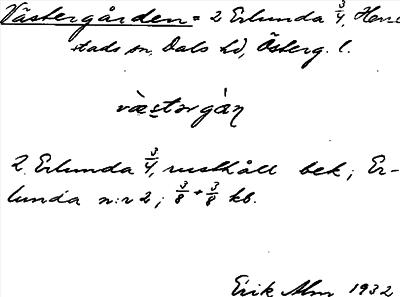 Västergården = 2 Erlunda 3/4, Herre-
stads sn, Dals hd, Österg. l.
væ̀stərgán
2 Erlunda 3/4, rusthåll bek; Er-
lunda n:r 2; 3/8 + 3/8 kb.
Erik Alm 1932